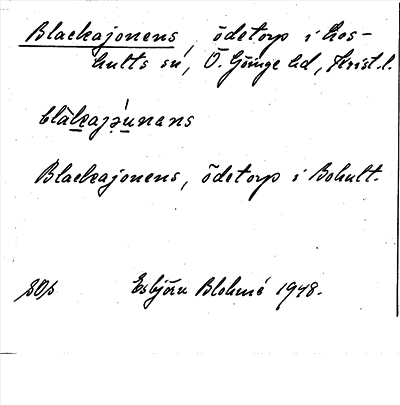 Blackajonens, ödetorp i Loshults sn, Ö. Göinge hd, Krist. l.
Blackajonens, ödetorp i Bohult.
Esbjörn Blohmé 1948.